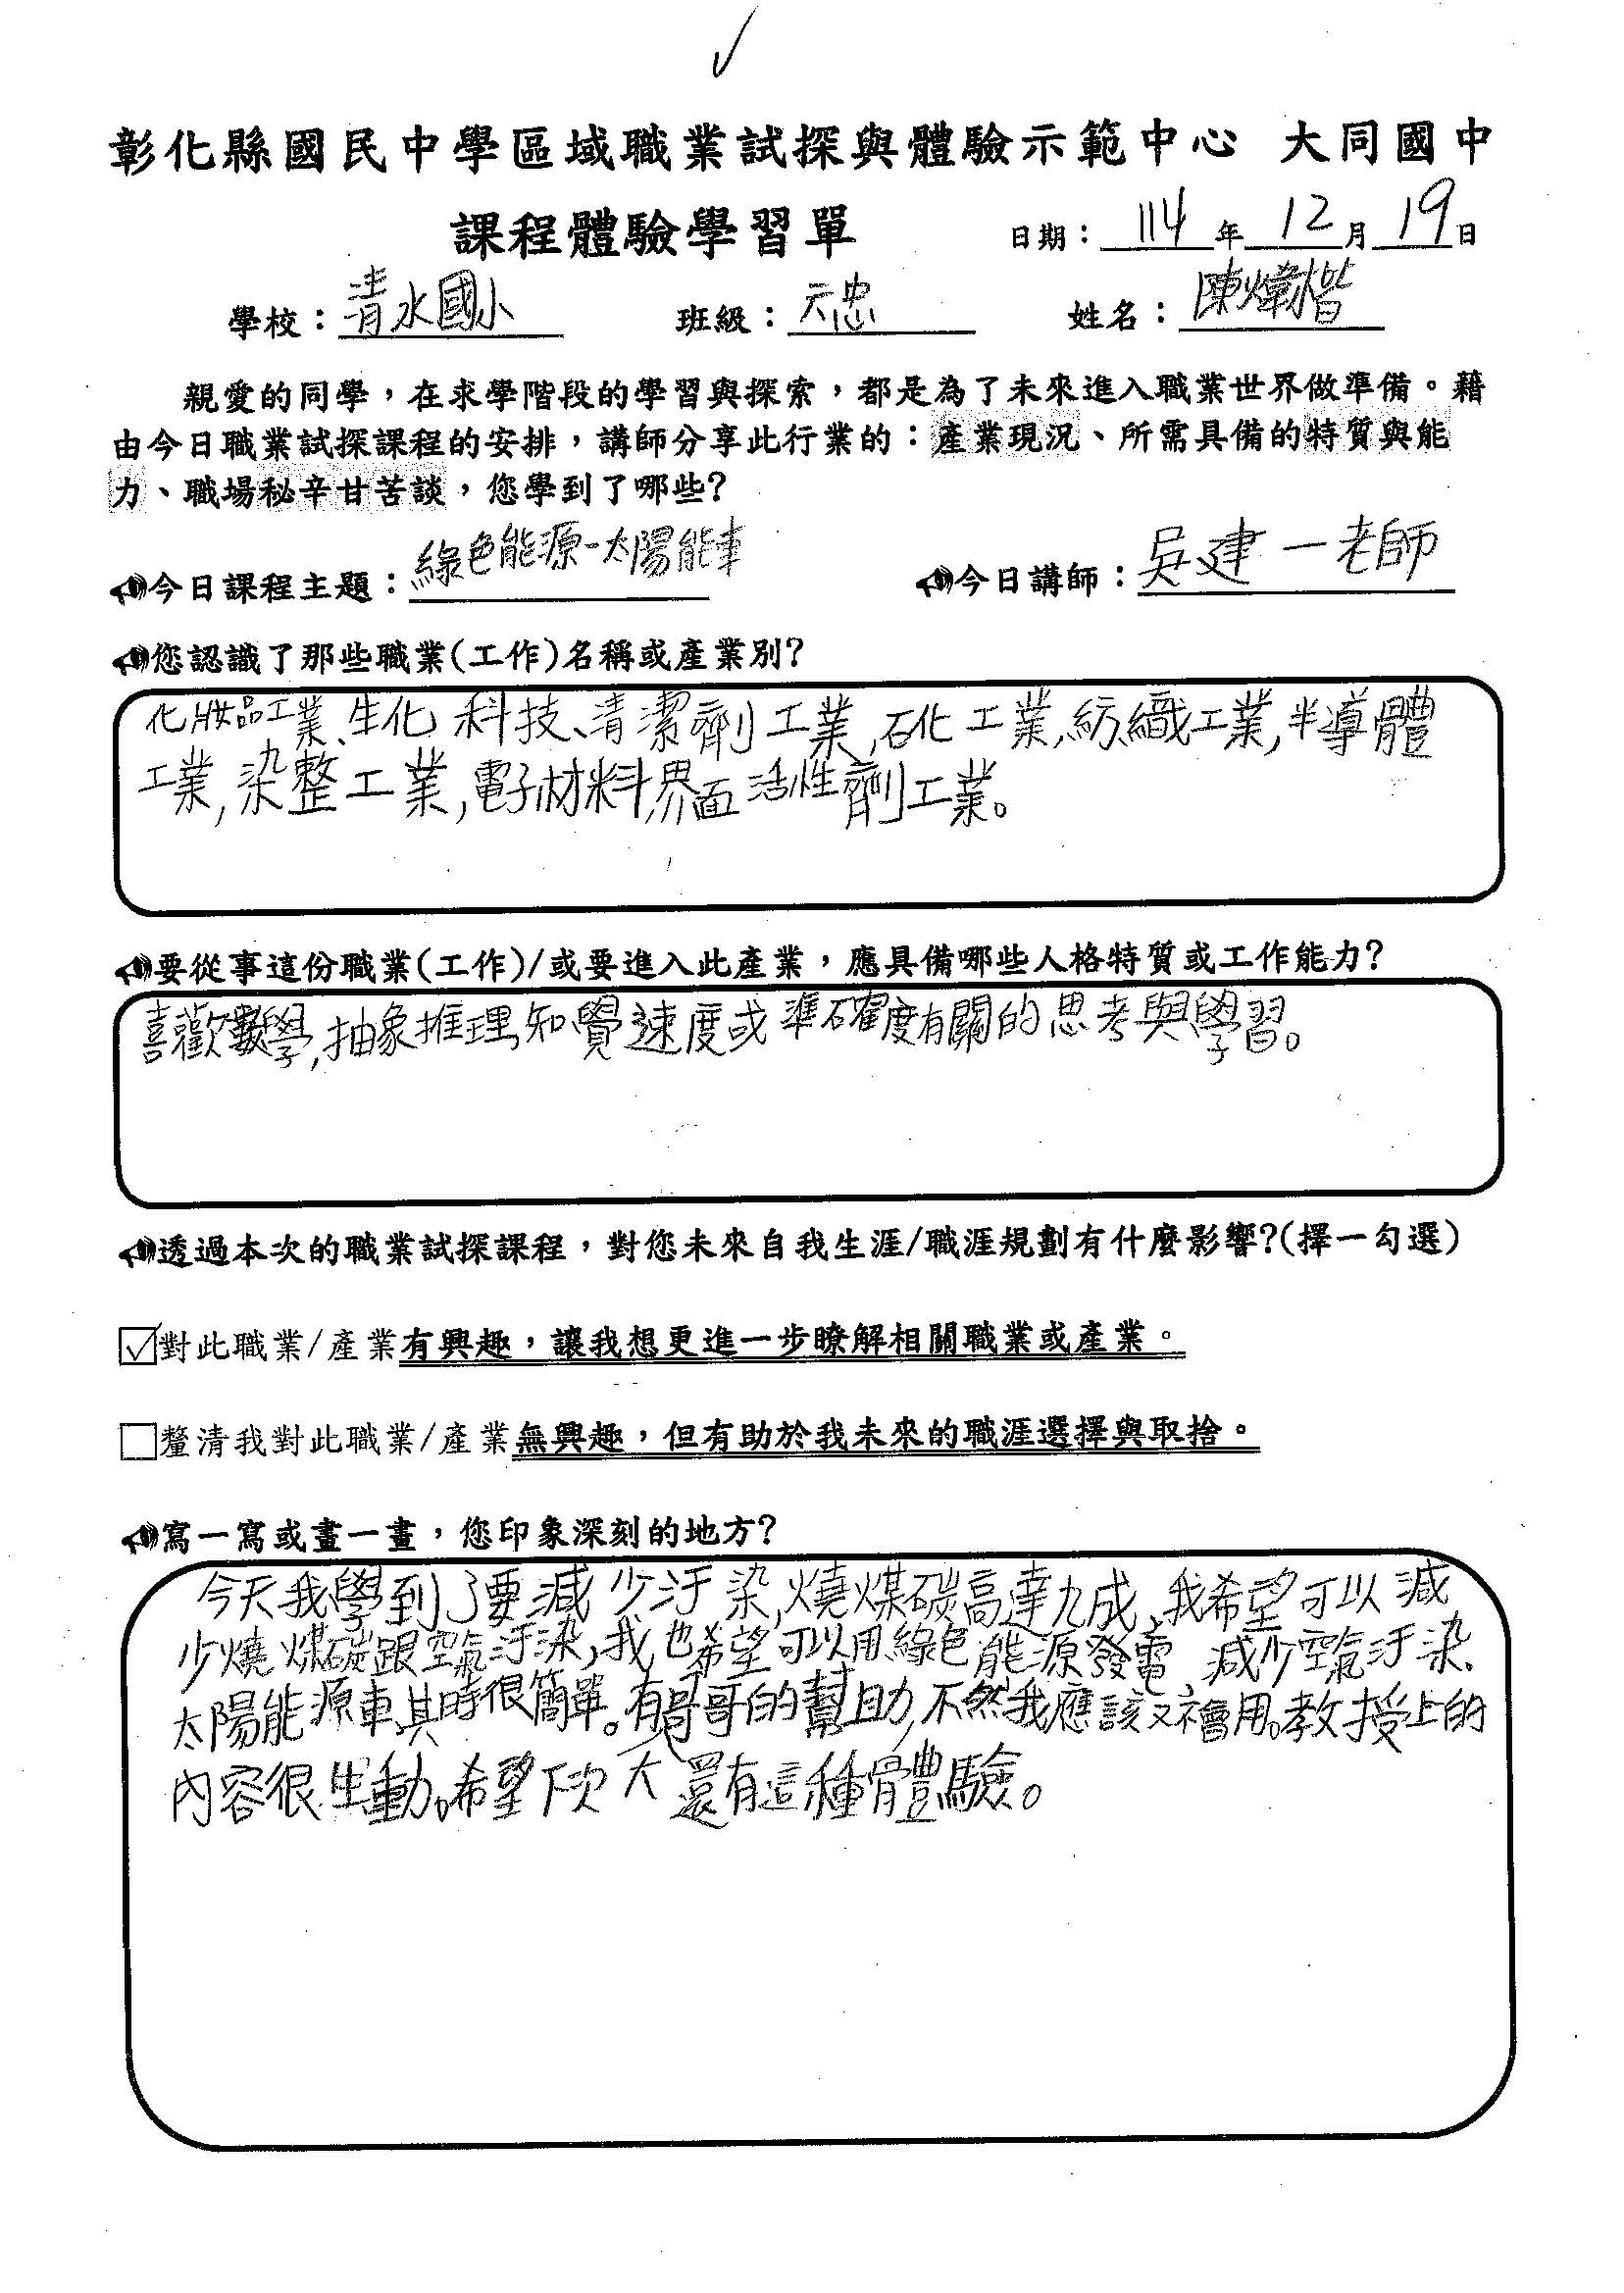 彰化縣國民中學區域職業試探與體驗示範中心 大同國中
課程體驗學習單 日期：114年12月19日
學校：清水國小 班級：六忠 姓名：陳煒楷
親愛的同學，在求學階段的學習與探索，都是為了未來進入職業世界做準備。藉
由今日職業試探課程的安排，講師分享此行業的：產業現況、所需具備的特質與能
力、職場秘辛甘苦談，您學到了哪些?
今日課程主題：綠色能源-太陽能車 今日講師：吳建一老師
您認識了那些職業(工作)名稱或產業別?
化妝品工業、生化科技、清潔劑工業,石化工業,紡織工業,半導體
工業,染整工業,電子材料界面活性劑工業。
要從事這份職業(工作)/或要進入此產業，應具備哪些人格特質或工作能力?
喜歡數學,抽象推理,知覺速度或準確度有關的思考與學習。
透過本次的職業試探課程，對您未來自我生涯/職涯規劃有什麼影響?(擇一勾選)
☑對此職業/產業有興趣，讓我想更進一步瞭解相關職業或產業。
□釐清我對此職業/產業無興趣，但有助於我未來的職涯選擇與取捨。
寫一寫或畫一畫，您印象深刻的地方?
今天我學到了要減少汙染,燒煤碳高達九成,我希望可以減
少燒煤碳跟空氣汙染,我也希望可以用綠色能源發電,減少空氣汙染.
太陽能源車,其時很簡單。有哥哥的幫助,不然我應該不會用。教授上的
內容很生動。希望下次還有這種體驗。